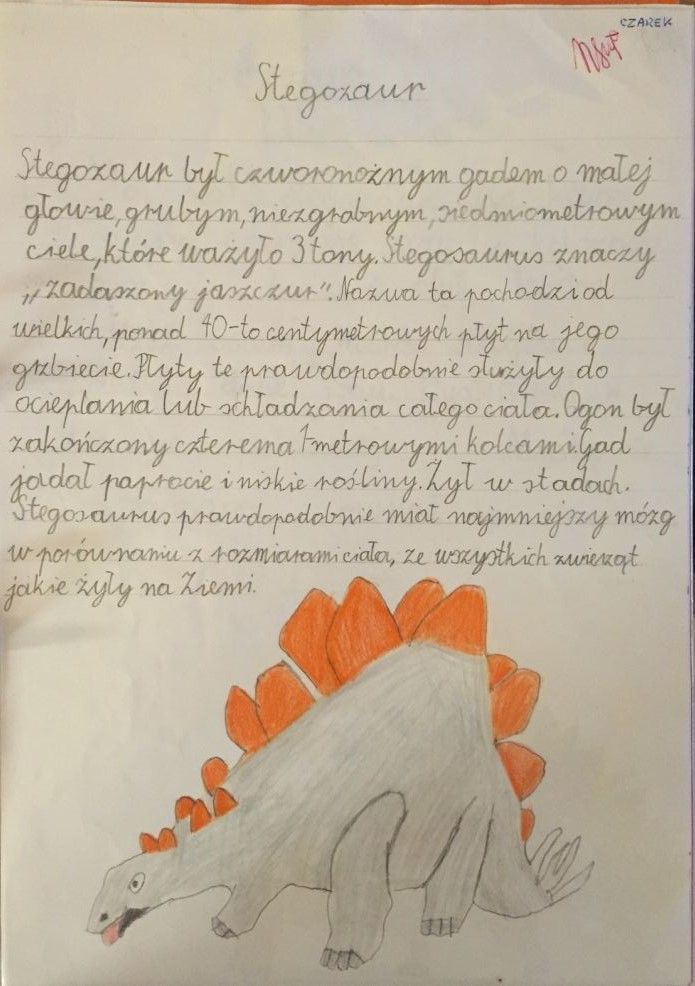 CZAREK
Stegozaur
Stegozaur był czworonożnym gadem o małej
głowie, grubym, niezgrabnym, siedmiometrowym
ciele, które ważyło 3 tony. Stegosaurus znaczy
„zadaszony jaszczur". Nazwa ta pochodzi od
wielkich, ponad 40-to centymetrowych płyt na jego
grzbiecie. Płyty te prawdopodobnie służyły do
ocieplania lub schładzania całego ciała. Ogon był
zakończony czterema 1-metrowymi kolcami. Gad
jadał paprocie i niskie rośliny. Żył w stadach.
Stegosaurus prawdopodobnie miał najmniejszy mózg
w porównaniu z rozmiarami ciała, ze wszystkich zwierząt
jakie żyły na Ziemi.